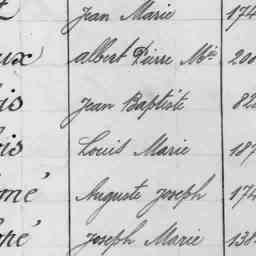 Jean Marie 174
albert Pierre Mie 200
Jean Baptiste 82
Louis Marie 187
Auguste Joseph 174
Joseph Marie 138